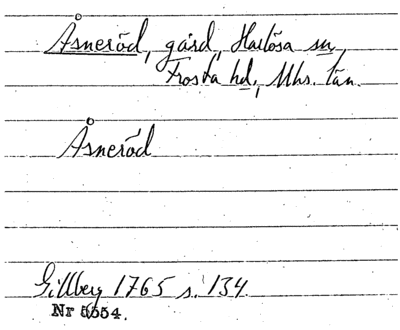 Åsneröd, gård, Harlösa sn,
Frosta hd, Mhs. län.
Åsneröd
Gillberg 1765 s. 134.
Nr 5554.